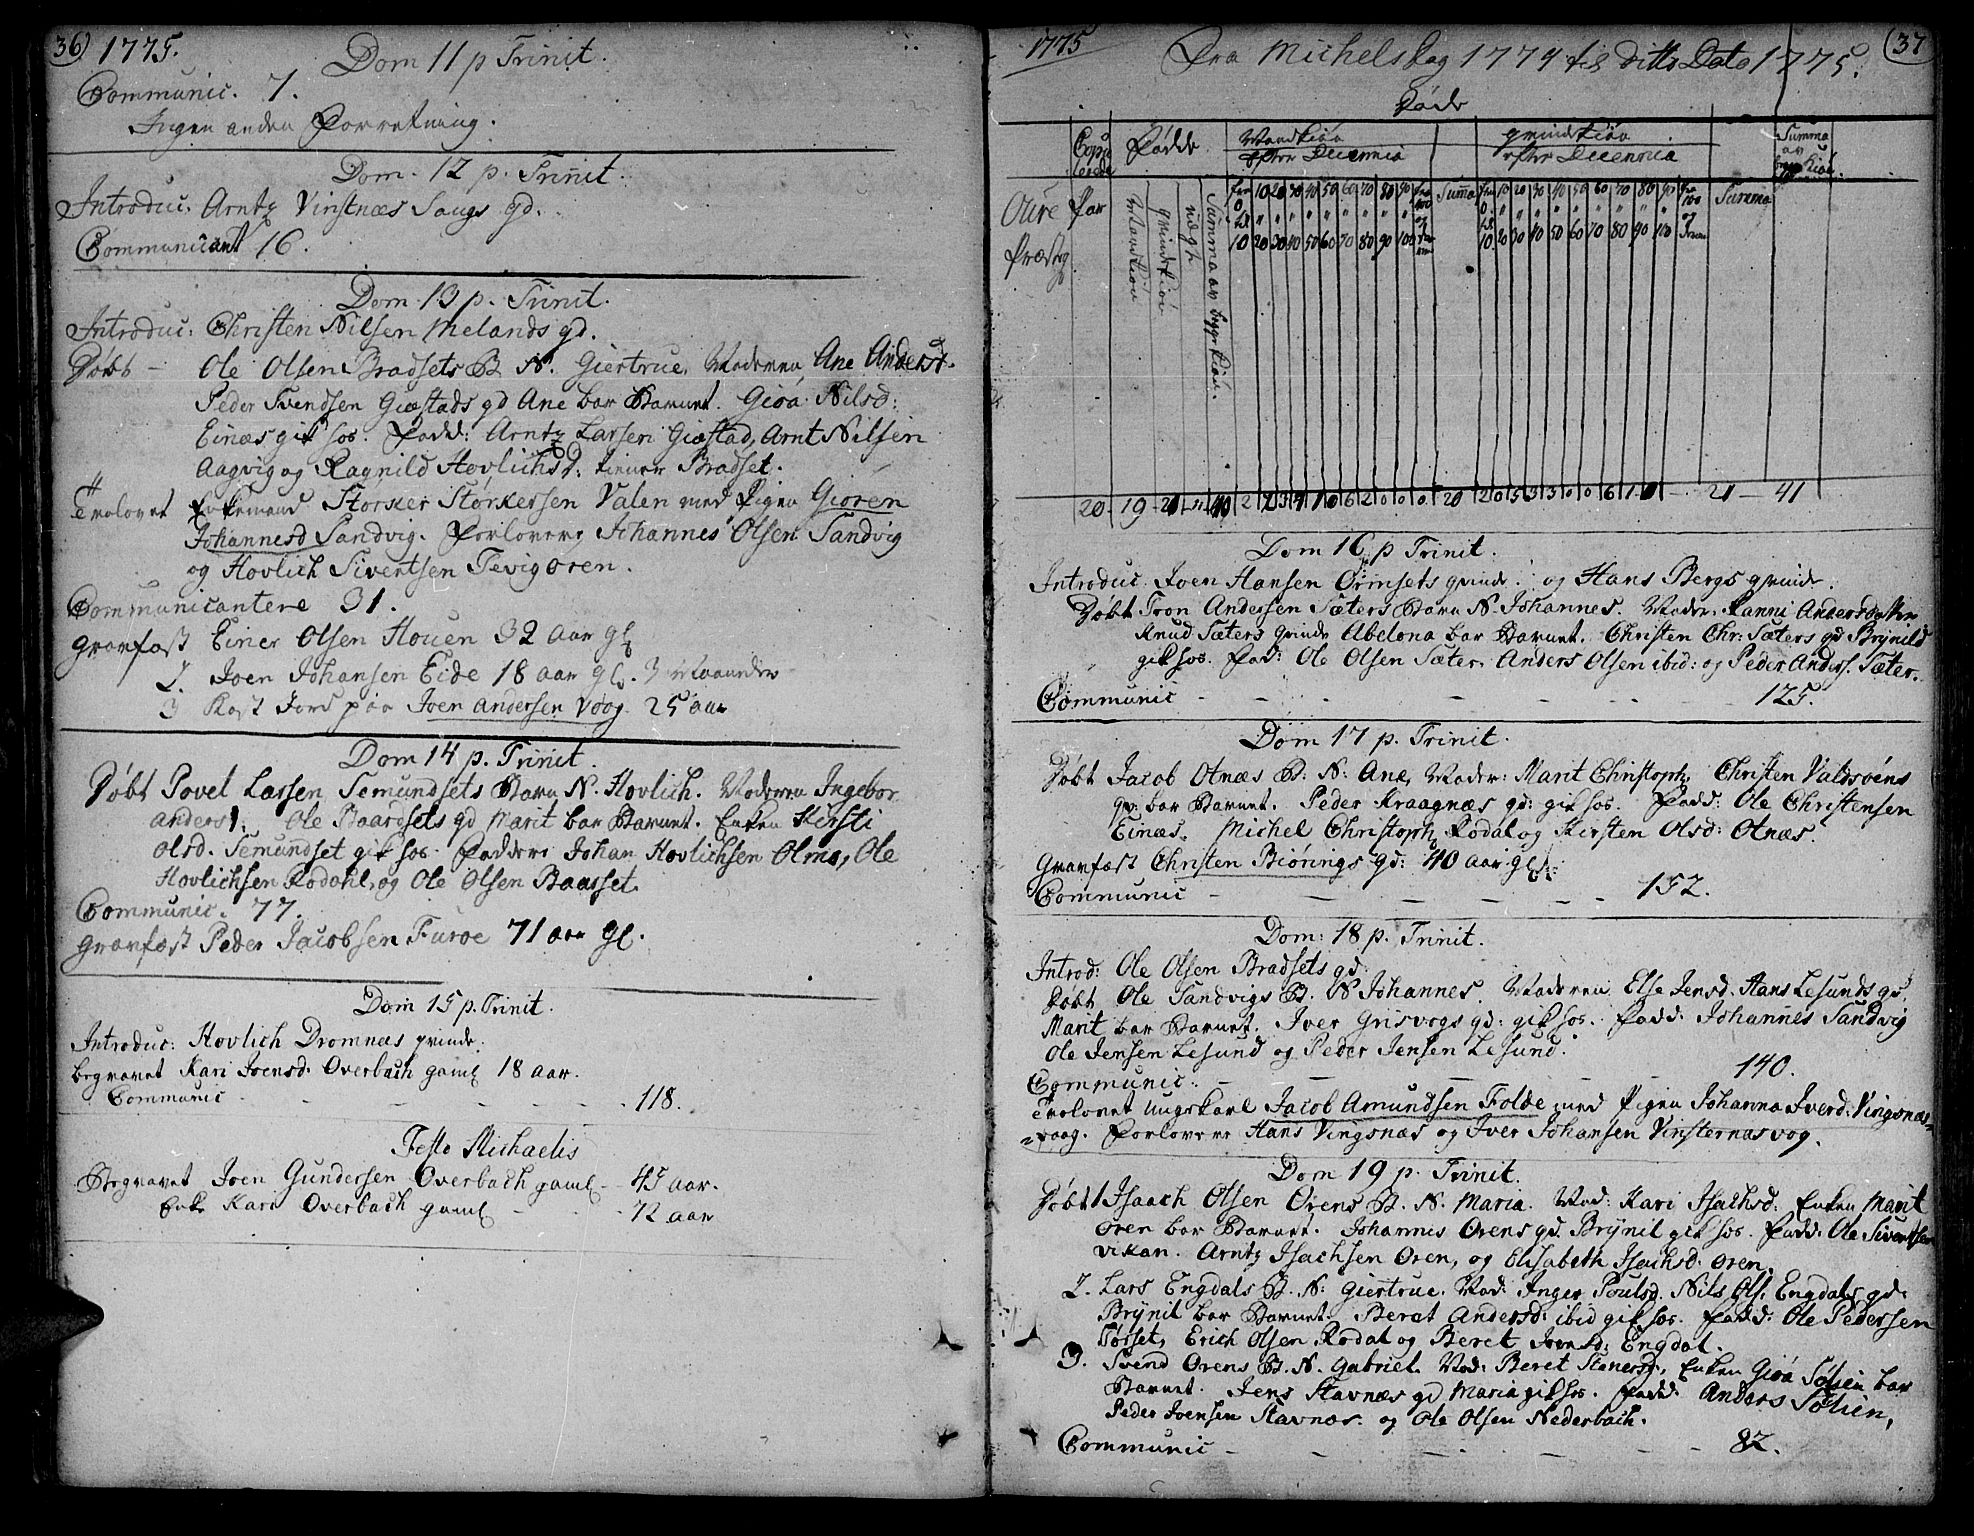 36) 1775.
Dom 11 p Trinit.
Communic. 7.
Ingen anden Forretning.
Dom. 12 p. Trinit.
Introduc. Arntz Vinstnæs Vaags gd.
Communicant 16.
Dom. 13 p. Trinit.
Introduc: Christen Nilsen Melands gd.
Døbt - Ole Olsen Bradsets B. N. Giertrue. Moderen Ane Andersd.
Peder Svendsen Giæstads gd Ane bar Barnet. Gioa Nilsd:
Einæs gik hos. Fadd: Arntz Larsen Giæstad, Arnt Nilsen
Aagvig og Ragnild Hovlichsd: tiener Bradset.
Trolovet Enkemand Storker Størkersen Valen med Pigen Gioren
Johannesd Sandvig. Forlovere Johannes Olsen Sandvig
og Hovlich Sivertsen Tevigoren.
Communicantere 31.
Gravfæst Einer Olsen Houen 32 aar gl
2. Joen Johansen Eide 18 aar gl. 3 Maaneder
3 Kast Jord paa Joen Andersen Vaag 25 aar
Dom 14 p. Trinit.
Døbt Povel Larsen Semundsets Barn N. Hovlich. Moderen Ingebor
Andersd. Ole Baardsets gd Marit bar Barnet. Enken Kersti
Olsd. Semundset gik hos. Faddere Johan Hovlichsen Olmo, Ole
Hovlichsen Rodahl, og Ole Olsen Baasset.
Communic. 77.
Gravfæst Peder Jacobsen Furøe 71 aar gl.
Dom 15 p. Trinit.
Introduc: Hovlich Dromnæs qvinde.
begravet Kari Joensd. Overbach gaml 18 aar.
Communic - - - - - 118.
Festo Michaelis
Begravet Joen Gundersen Overbach gaml - 45 aar.
Enke Kari Overbach gaml - - 72 aar
1775 Fra Michelsdag 1774 til ditto Dato 1775. 37
Døde
Copulerede Fødde Mandkiøn efter Decennia qvindekiøn efter Decennia Summa av begge Kiøn.
Oure Præsteg. Par Mandkiøn qvindekiøn uægte Summa av begge Kiøn. Summa Summa
fra 0 til 10 10 20 20 30 30 40 40 50 50 60 60 70 70 80 80 90 90 100
20 - 19 - 21 - 40 20 21 - 41
Dom 16 p Trinit.
Introduc Joen Hansen Ormsets qvinde. og Hans Bergs qvinde.
Døbt Tron Andersen Sæters Barn N. Johannes. Moder. Ranni Andersdatter
Knud Sæters qvinde Abelona bar Barnet. Christen Chr: Sæters gd Brynild
gik hos. Fad: Ole Olsen Sæter. Anders Olsen ibid: og Peder Anders. Sæter.
Communic - - - - - 125.
Dom 17 p. Trinit.
Døbt Jacob Otnæs B: N: Ane, Moder: Marit Christoph, Christen Valdsøens
qv: bar Barnet. Peder Kraagnæs gd: gik hos. Fadd: Ole Christensen
Einæs. Michel Christoph Rodal og Kirsten Olsd: Otnæs.
Gravfæst Christen Biørings gd: 40 aar gl.
Communic - - - - - 152.
Dom: 18 p. Trinit.
Introd: Ole Olsen Bradsets gd
Døbt Ole Sandvigs B. N Johannes. Moderen Else Jensd. Hans Lesunds gd.
Marit bar Barnet. Iver Grisvogs gd: gik hos. Fadd. Johannes Sandvig
Ole Jensen Lesund og Peder Jensen Lesund.
Communic: - - - - - 140.
Trolovet ungkarl Jacob Amundsen Folde med Pigen Johanna Iverd: Vingsnæs=
=vaag. Forlovere Hans Vingsnæs og Iver Johansen Vinsternæsvog.
Dom 19 p. Trinit.
Døbt 1 Isaach Olsen Ørens B. N. Maria. Mod: Kari Isachsd: Enken Marit
Øren bar Barnet. Johannis Orens gd. Brynil gik hos. Fadd: Ole Sivertsen
Vikan. Arntz Isachsen Oren, og Elisabeth Isachsd. Oren.
2. Lars Engdals B. N: Giertrue. Mod: Inger Poulsd. Nils Ols. Engdals gd.
Brynit bar Barnet. Berat Andersd: ibid gik hos. Fadd: Ole Pedersen
Torset, Erich Olsen Rodal og Beret Joensd: Engdal.
3. Svend Orens B. N. Gabriel. Mod: Beret Stenersd. Enken Gioa Solsen bar
Barnet. Jens Stavnæs gd Maria gik hos. Fadd: Anders Solsen,
Peder Joensen Stavnæs. og Ole Olsen Nederbach.
Communic - - - - - 82.